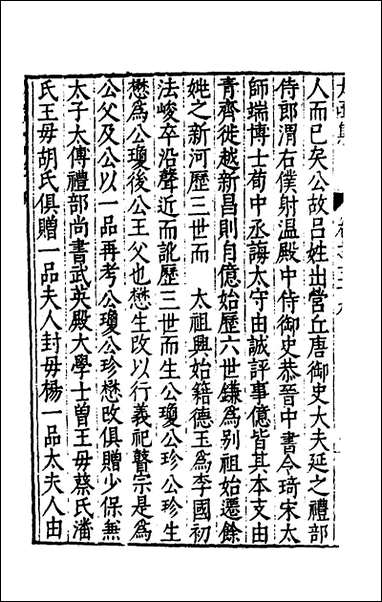 人而已矣公故吕姓出營丘唐御史大夫延之禮部
侍郎渭右僕射温殿中侍御史恭晉中書令琦宋太
師端博士荀中丞誨太守由誠評事億皆其本支由
青齊徙越新昌則自億始歷六世鎌爲别祖始遷餘
姚之新河歷三世而　太祖興始籍德王爲李國初
法峻卒沿聲近而訛歷三世而生公瓊公珍公珍生
懋爲公瓊後公王父也懋生改以行義祀瞽宗是爲
公父及公以一品再考公瓊公珍懋改俱贈少保無
太子太傅禮部尚書武英殿大學士曽王毋蔡氏潘
氏王毋胡氏俱贈一品夫人封毋楊一品太夫人由